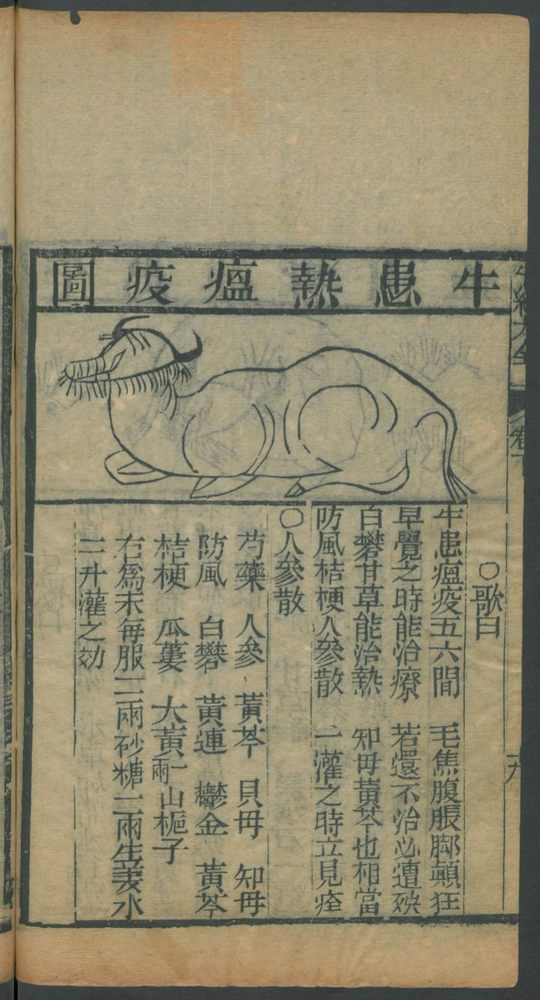 牛患熱瘟疫圖
牛經大全
卷下
九
○歌曰
牛患瘟疫五六間 毛焦腹脹脚顛狂
早覺之時能治療 若還不治必遭殃
白礬甘草能治熱 知母黃芩也相當
防風桔梗人參散 一灌之時立見痊
○人參散
芍藥 人參 黃芩 貝母 知母
防風 白礬 黃連 鬱金 黃芩
桔梗 瓜蔞 大黃一兩 山梔子
右爲末每服二兩砂糖二兩生姜水
二升灌之効